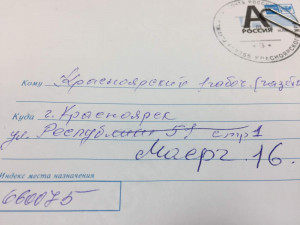 А
РОССИЯ
Кому Красноярский рабоч. (газета
Куда г. Красноярск
ул. Республики 51 стр 1
Маерч. 16.
Индекс места назначения
660075